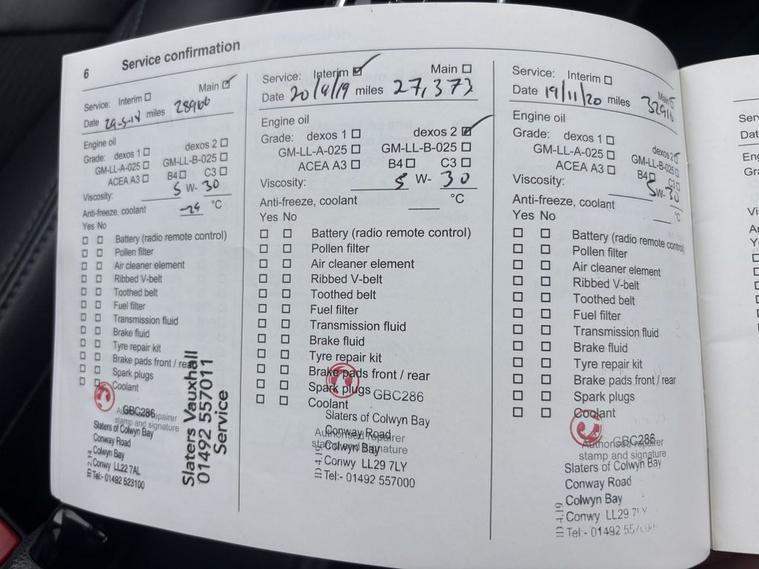 6 Service confirmation
Service: Interim Main
Date 29-5-18 miles
Engine oil
Grade: dexos 1 dexos 2
GM-LL-A-025 GM-LL-B-025
ACEA A3 B4 C3
Viscosity: 5 W- 30
Anti-freeze, coolant °C
Yes No
Battery (radio remote control)
Pollen filter
Air cleaner element
Ribbed V-belt
Toothed belt
Fuel filter
Transmission fluid
Brake fluid
Tyre repair kit
Brake pads front / rear
Spark plugs
Coolant
GBC286
Authorised repairer
stamp and signature
Slaters of Colwyn Bay
Conway Road
Colwyn Bay
Conwy LL22 7AL
Tel:- 01492 523100
Slaters Vauxhall
01492 557011
Service
Service: Interim Main
Date 20/4/19 miles 27,373
Engine oil
Grade: dexos 1 dexos 2
GM-LL-A-025 GM-LL-B-025
ACEA A3 B4 C3
Viscosity: 5 W- 30
Anti-freeze, coolant °C
Yes No
Battery (radio remote control)
Pollen filter
Air cleaner element
Ribbed V-belt
Toothed belt
Fuel filter
Transmission fluid
Brake fluid
Tyre repair kit
Brake pads front / rear
Spark plugs
GBC286
Coolant
Slaters of Colwyn Bay
Conway Road
Authorised repairer
stamp and signature
Colwyn Bay
Conwy LL29 7LY
Tel:- 01492 557000
Service: Interim Main
Date 19/11/20 miles
Engine oil
Grade: dexos 1 dexos 2
GM-LL-A-025 GM-LL-B-025
ACEA A3 B4 C3
Viscosity: 5 W- 30
Anti-freeze, coolant °C
Yes No
Battery (radio remote control)
Pollen filter
Air cleaner element
Ribbed V-belt
Toothed belt
Fuel filter
Transmission fluid
Brake fluid
Tyre repair kit
Brake pads front / rear
Spark plugs
Coolant
GBC286
Authorised repairer
stamp and signature
Slaters of Colwyn Bay
Conway Road
Colwyn Bay
Conwy LL29
Tel:- 01492